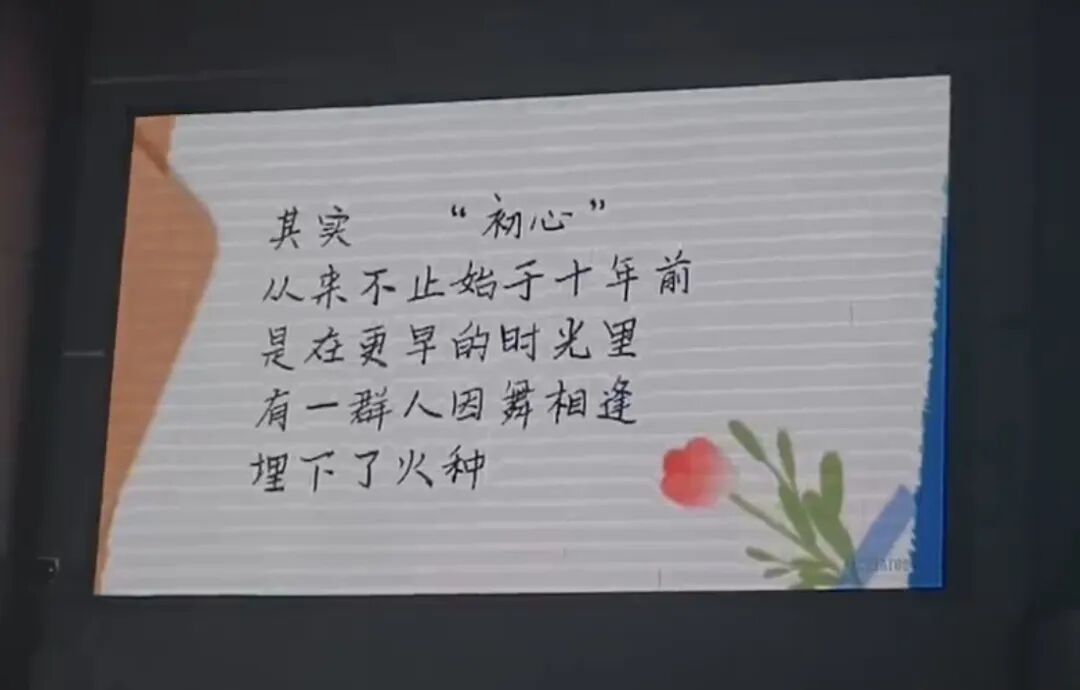 其实 “初心”
从来不止始于十年前
是在更早的时光里
有一群人因舞相逢
埋下了火种